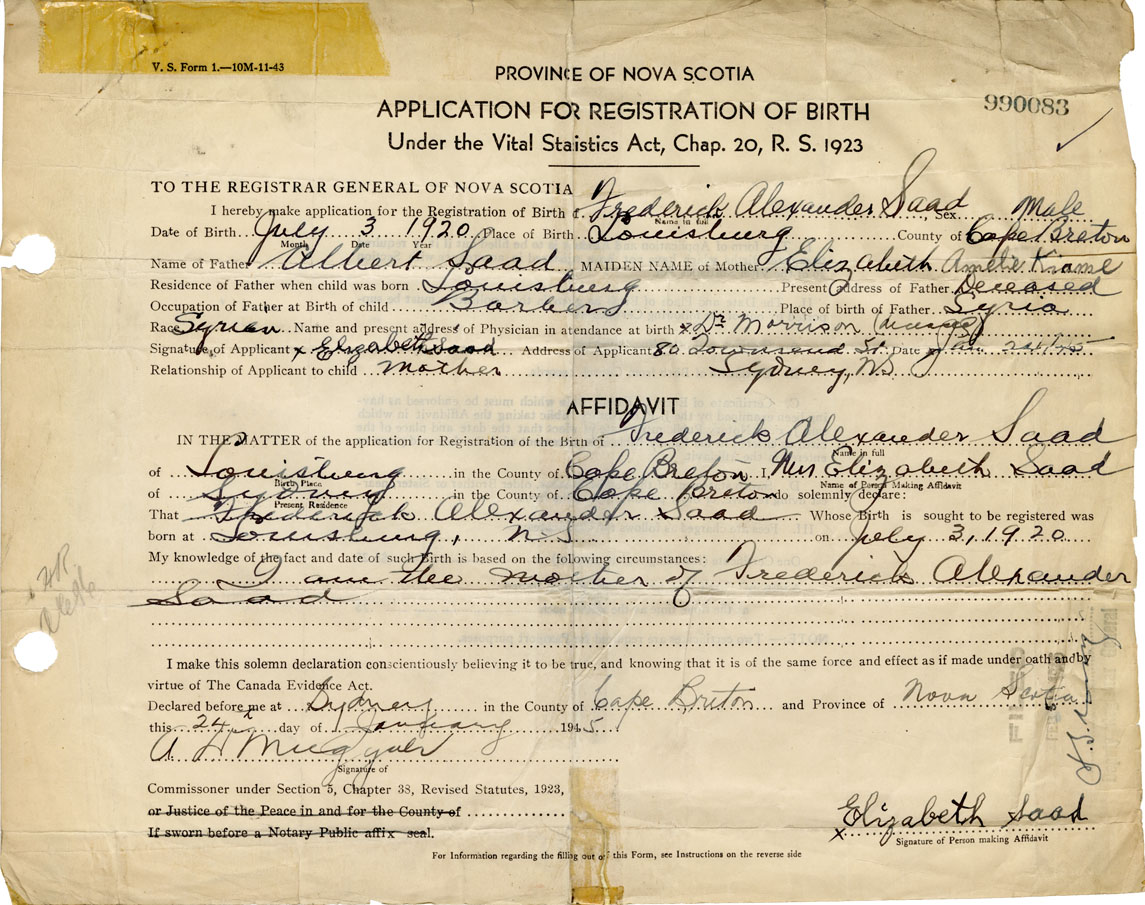 V. S. Form 1.—10M-11-43
PROVINCE OF NOVA SCOTIA
990083
APPLICATION FOR REGISTRATION OF BIRTH
Under the Vital Statistics Act, Chap. 20, R. S. 1923
TO THE REGISTRAR GENERAL OF NOVA SCOTIA
I hereby make application for the Registration of Birth of Frederick Alexander Saad Sex Male
Name in full
Date of Birth July 3 1920 Place of Birth Louisburg County of Cape Breton
Month Date Year
Name of Father Albert Saad MAIDEN NAME of Mother Elizabeth Amelie
Residence of Father when child was born Louisburg Present address of Father Deceased
Occupation of Father at Birth of child Barber Place of birth of Father Syria
Race Syrian Name and present address of Physician in atendance at birth x Dr Morrison
Signature of Applicant x Elizabeth Saad Address of Applicant 80 Townsend St. Date Jan 24/45
Relationship of Applicant to child Mother Sydney, NS
AFFIDAVIT
IN THE MATTER of the application for Registration of the Birth of Frederick Alexander Saad
Name in full
of Louisburg in the County of Cape Breton I, Mrs Elizabeth Saad
Birth Place Name of Person Making Affidavit
of Sydney in the County of Cape Breton do solemnly declare:
Present Residence
That Frederick Alexander Saad Whose Birth is sought to be registered was
born at Louisburg, N.S on July 3, 1920
My knowledge of the fact and date of such Birth is based on the following circumstances:
I am the mother of Frederick Alexander
Saad
I make this solemn declaration conscientiously believing it to be true, and knowing that it is of the same force and effect as if made under oath and by
virtue of The Canada Evidence Act.
Declared before me at Sydney in the County of Cape Breton and Province of Nova Scotia
this 24 day of January 1945
Signature of
Commissoner under Section 5, Chapter 38, Revised Statutes, 1923,
or Justice of the Peace in and for the County of
If sworn before a Notary Public affix seal.
x Elizabeth Saad
Signature of Person making Affidavit
For Information regarding the filling out of this Form, see Instructions on the reverse side